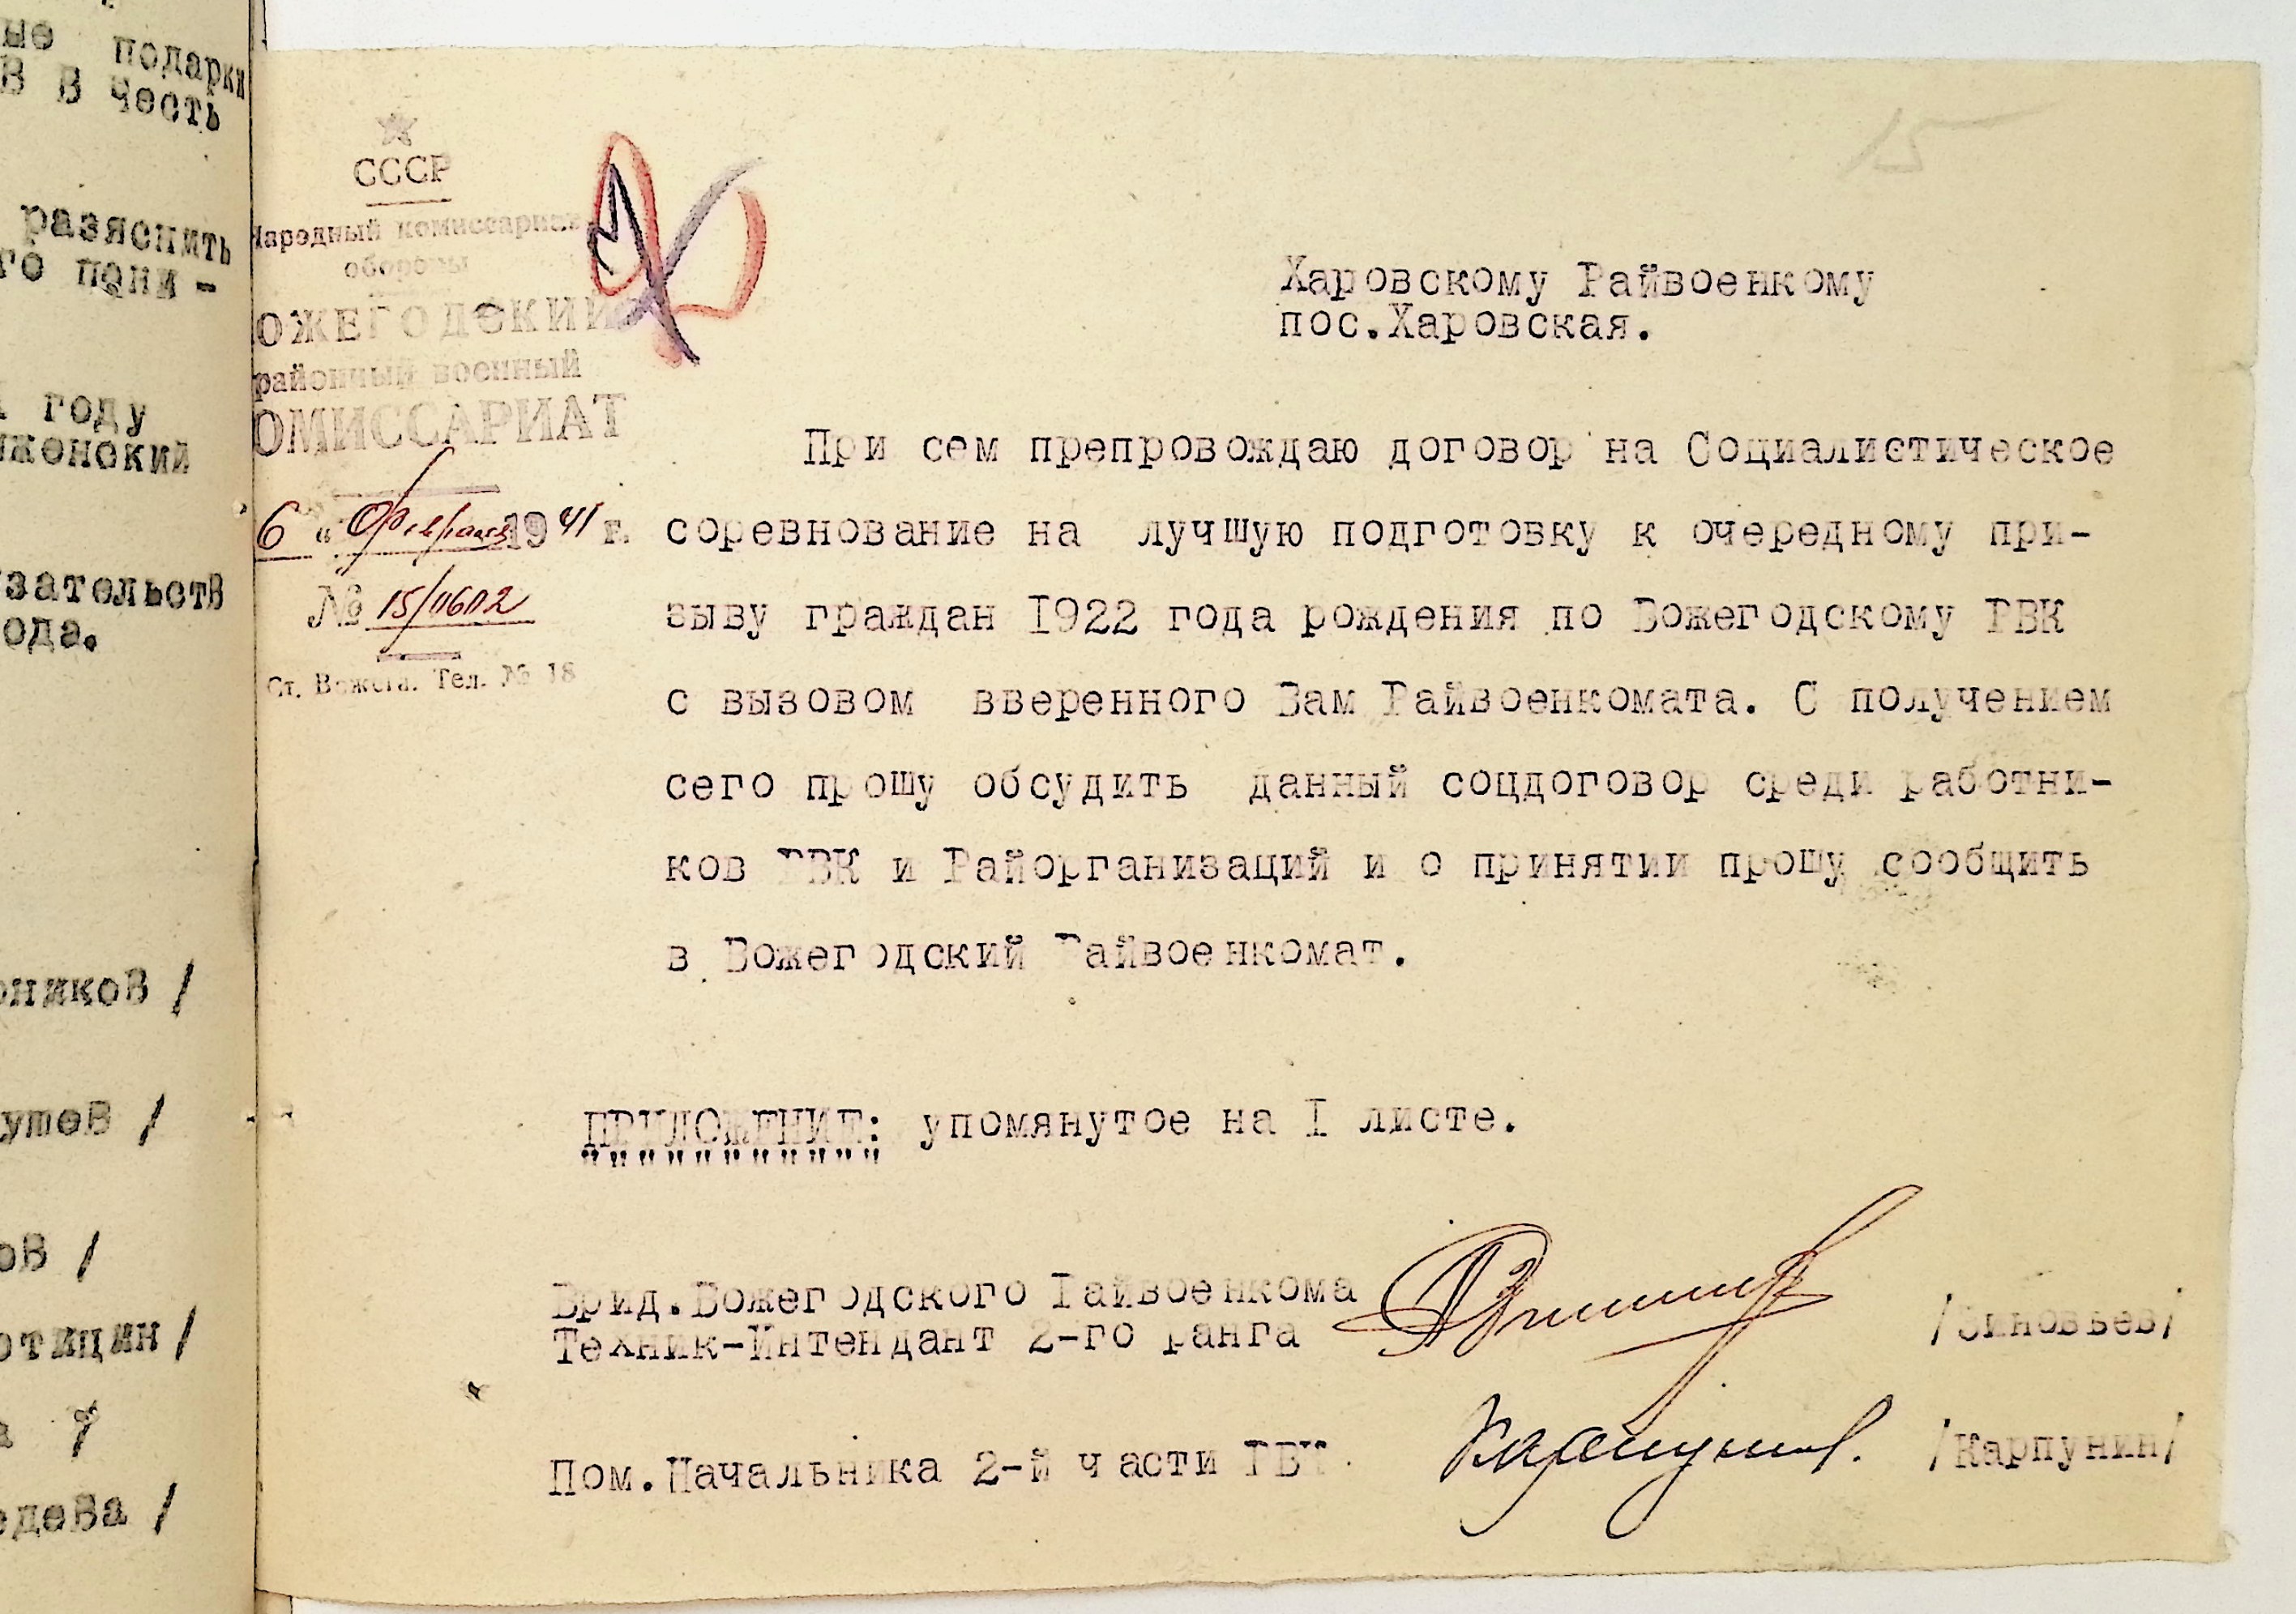 ые подарки
В В Честь
разяснить
го пони -
году
женский
зательств
ода.
ников /
утов /
ов /
отицин /
а /
едева /
15
СССР
Народный комиссариат
обороны
ОЖЕГОДСКИЙ
районный военный
ОМИССАРИАТ
6 " Февраля 1941 г.
№ 15/
Ст. Вожега. Тел. № 18
Харовскому Райвоенкому
пос.Харовская.
При сем препровождаю договор на Социалистическое
соревнование на лучшую подготовку к очередному при-
зыву граждан I922 года рождения по Вожегодскому РВК
с вызовом вверенного Вам Райвоенкомата. С получением
сего прошу обсудить данный соцдоговор среди работни-
ков РВК и Райорганизаций и о принятии прошу сообщить
в Вожегодский Райвоенкомат.
ПРИЛОЖЕНИЕ: упомянутое на I листе.
Врид.Вожегодского Райвоенкома
Техник-Интендант 2-го ранга /Зиновьев/
Пом.Начальника 2-й части РВК. Карпунин. /Карпунин/